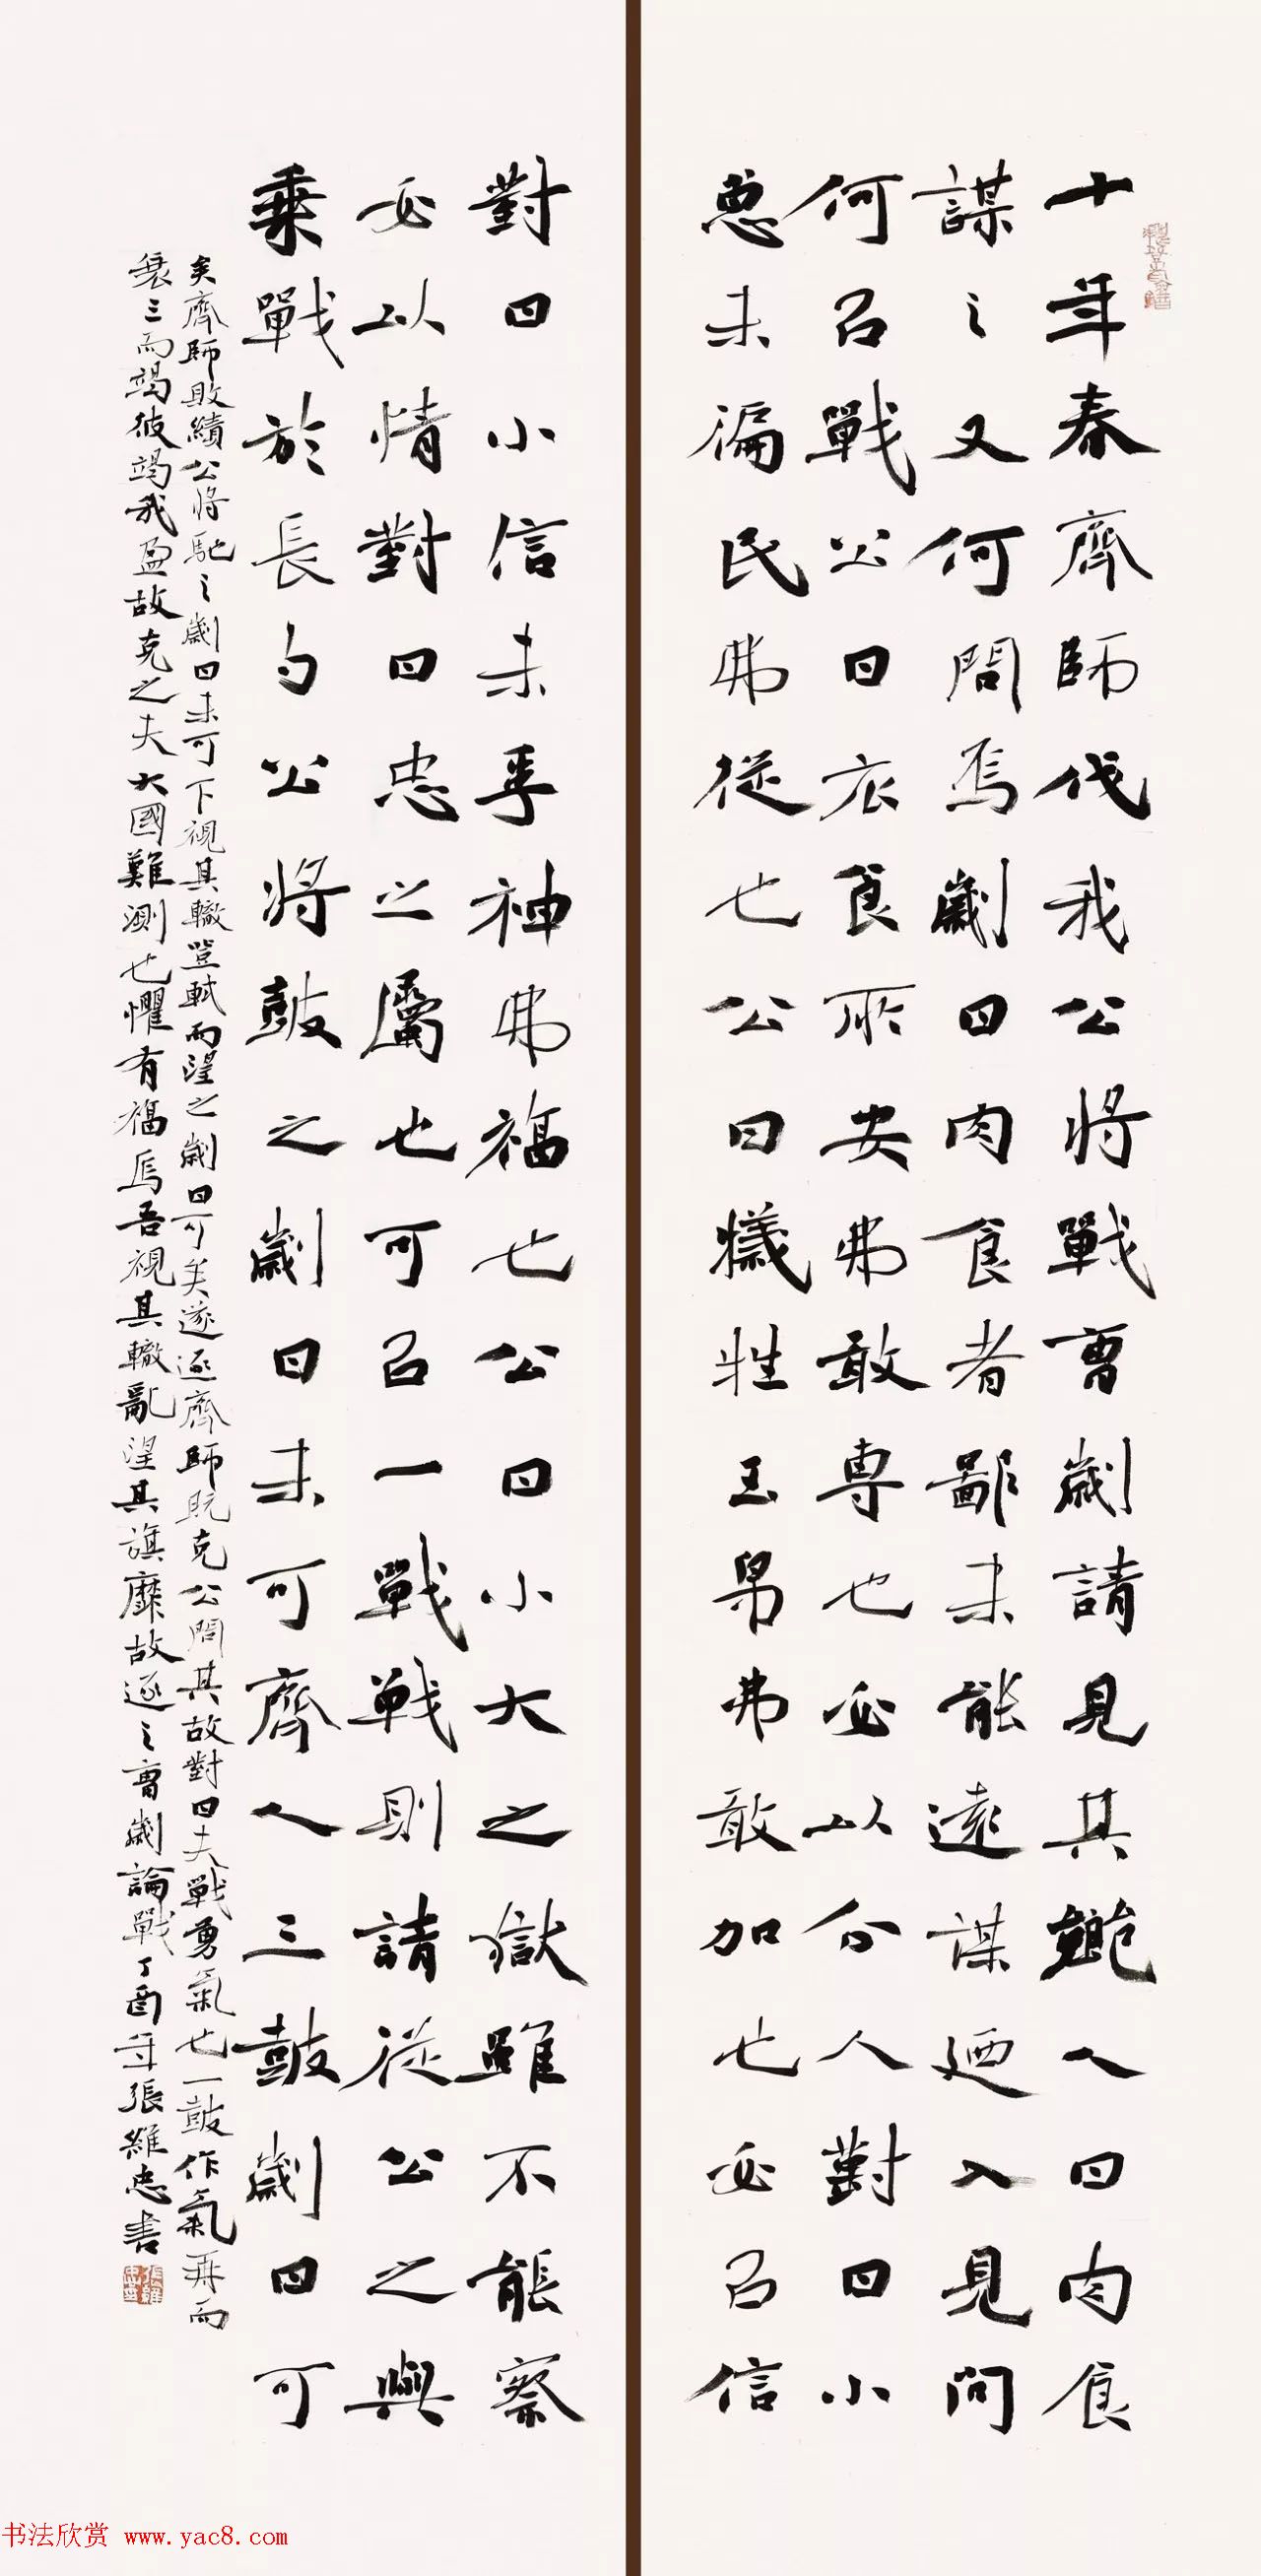 十年春齊師伐我公將戰曹劌請見其鄉人曰肉食
謀之又何間焉劌曰肉食者鄙未能遠謀廼入見問
何㠯戰公曰衣食所安弗敢專也必以分人對曰小
惠未徧民弗從也公曰犧牲玉帛弗敢加也必㠯信
對曰小信未孚神弗福也公曰小大之獄雖不能察
必以情對曰忠之屬也可㠯一戰戰則請從公之與
乘戰於長勺公將鼓之劌曰未可齊人三鼓劌曰可
矣齊師敗績公將馳之劌曰未可下視其轍登軾而望之劌曰可矣遂逐齊師既克公問其故對曰夫戰勇氣也一鼓作氣再而
衰三而竭彼竭我盈故克之夫大國難測也懼有福焉吾視其轍亂望其旗靡故逐之曹劌論戰丁酉年張維忠書
书法欣赏 www.yac8.com